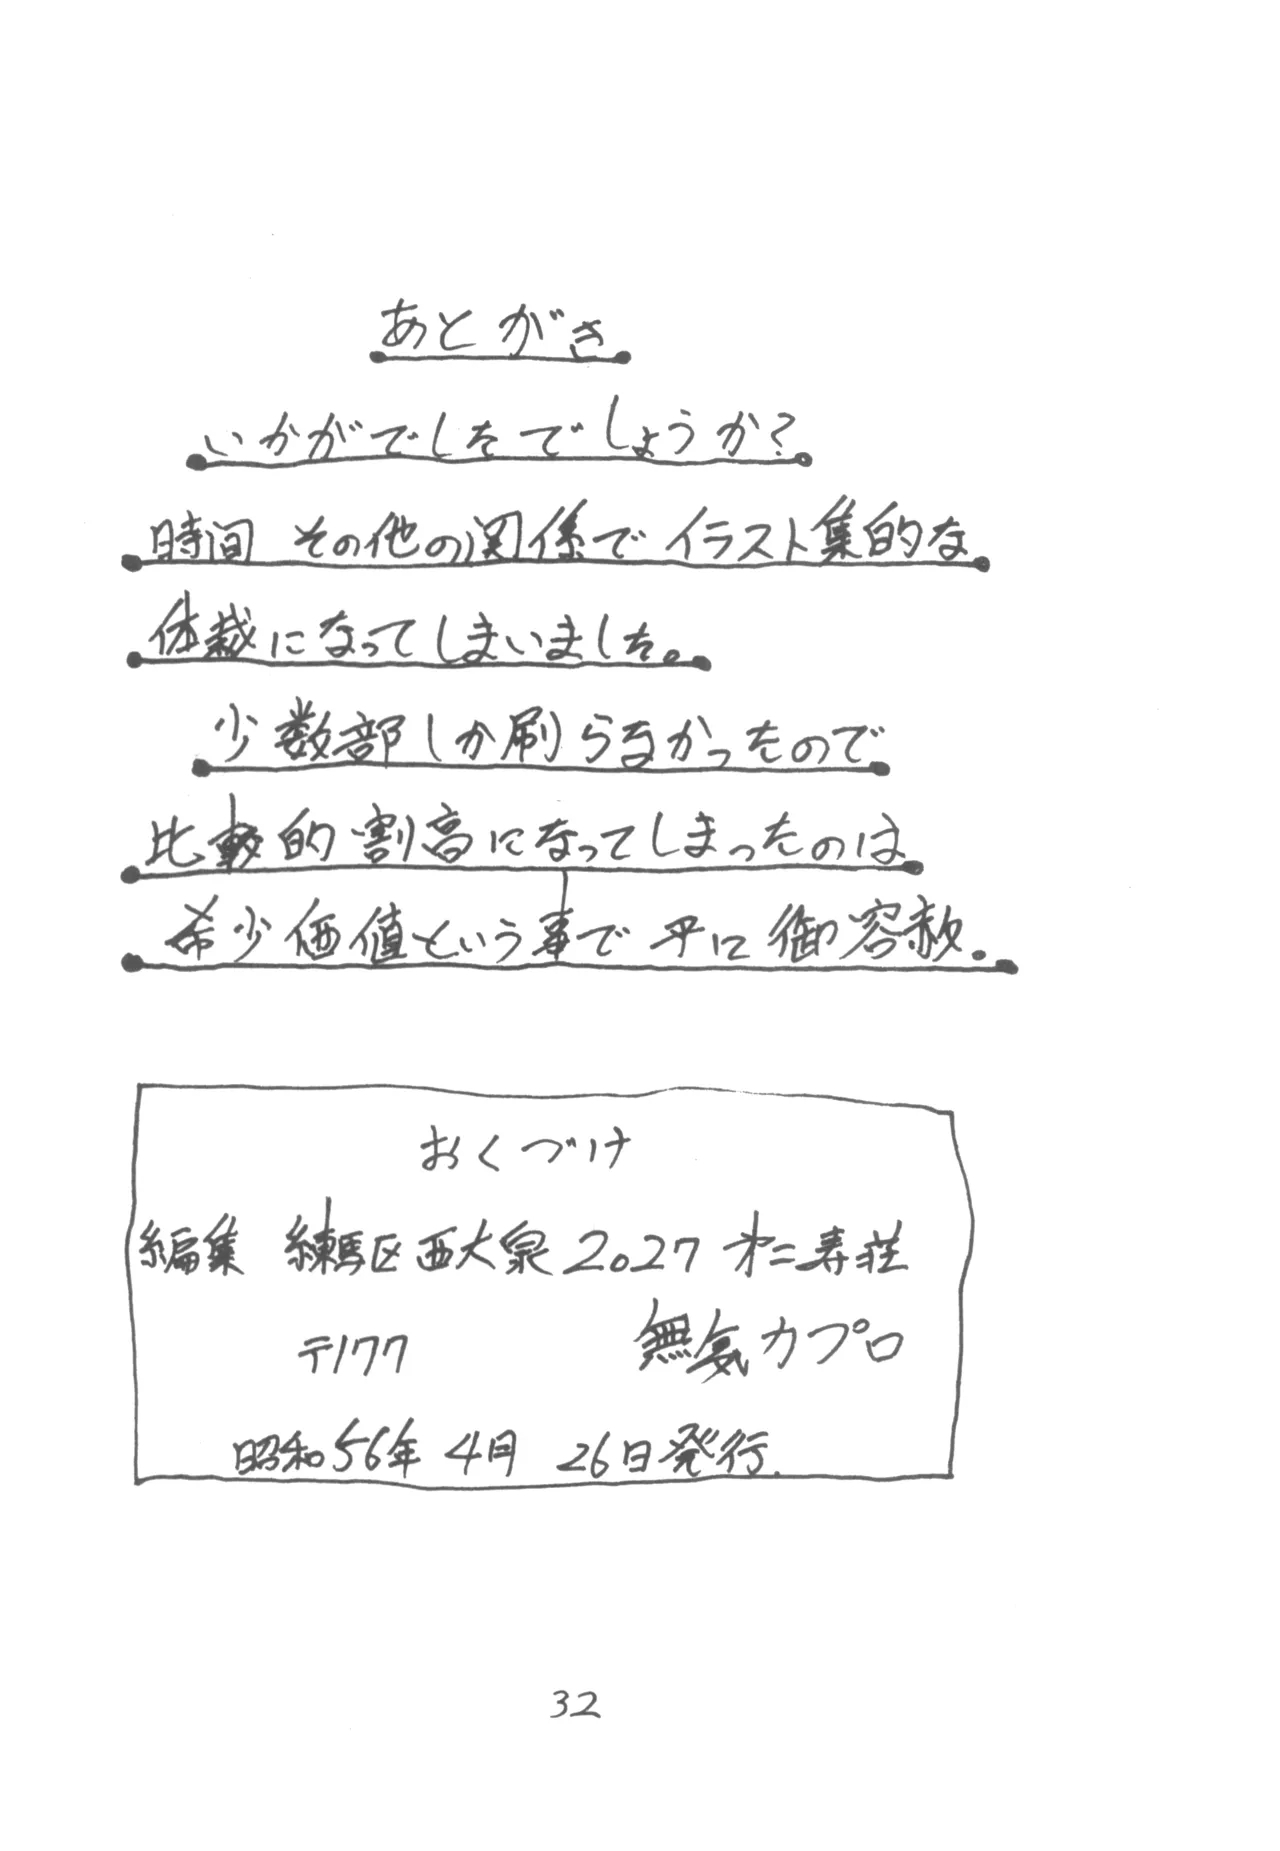 あとがき
いかがでしたでしょうか?
時間 その他の関係で イラスト集的な
体裁になってしまいました。
少数部しか刷らなかったので
比較的割高になってしまったのは
希少価値という事で 平に 御容赦.
おくづけ
編集 練馬区西大泉2027 才二寿荘
〒177 無気力プロ
昭和56年 4月 26日発行.
32